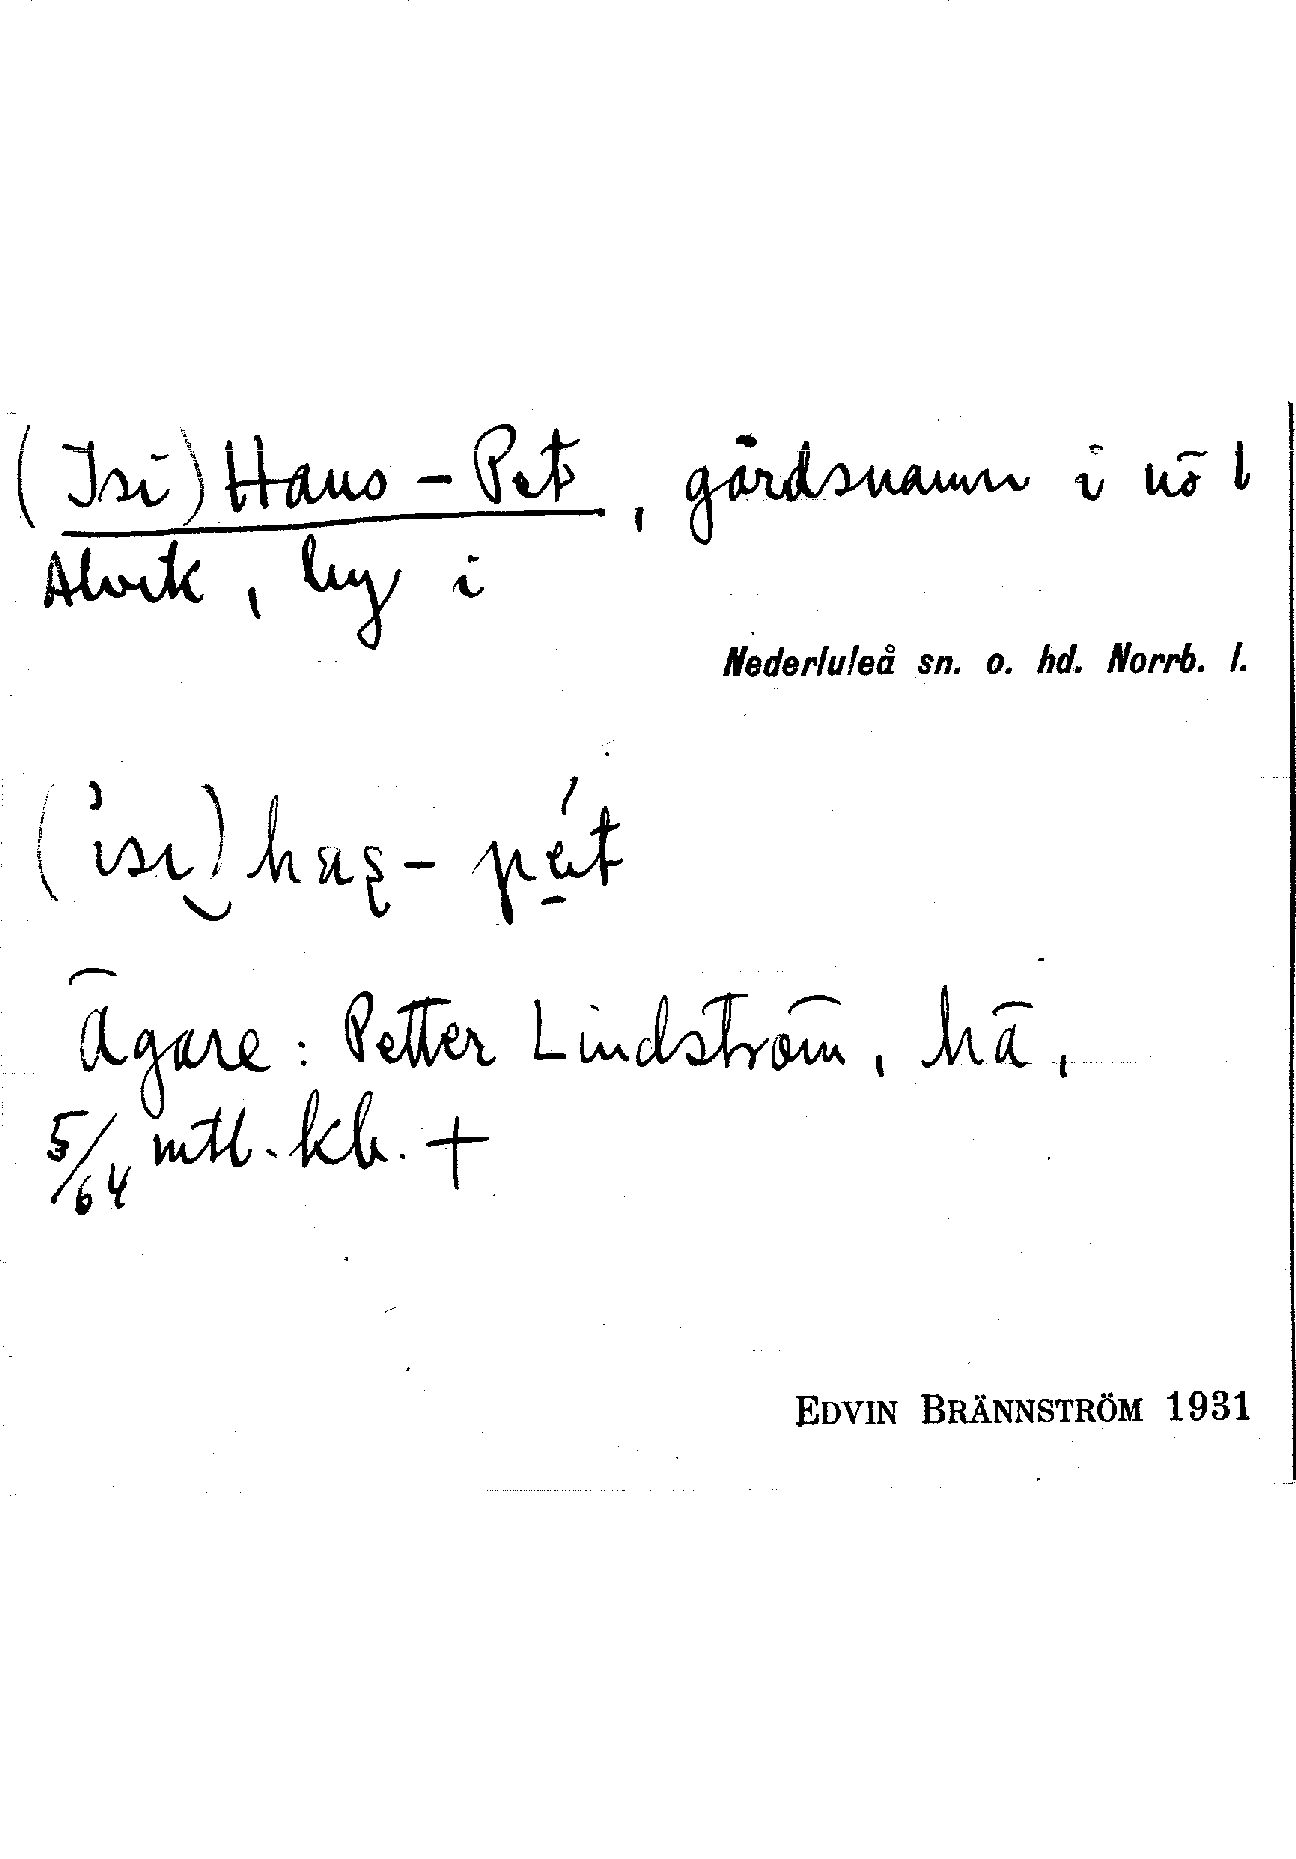 (Isi)Hans-Pet, gårdsnamn i nö l
Alvik, by i
Nederluleå sn. o. hd. Norrb. l.
(ìsi)‿haṣ-pét
Ägare: Petter Lindström, hä,
5/64 mtl. kb. +
EDVIN BRÄNNSTRÖM 1931